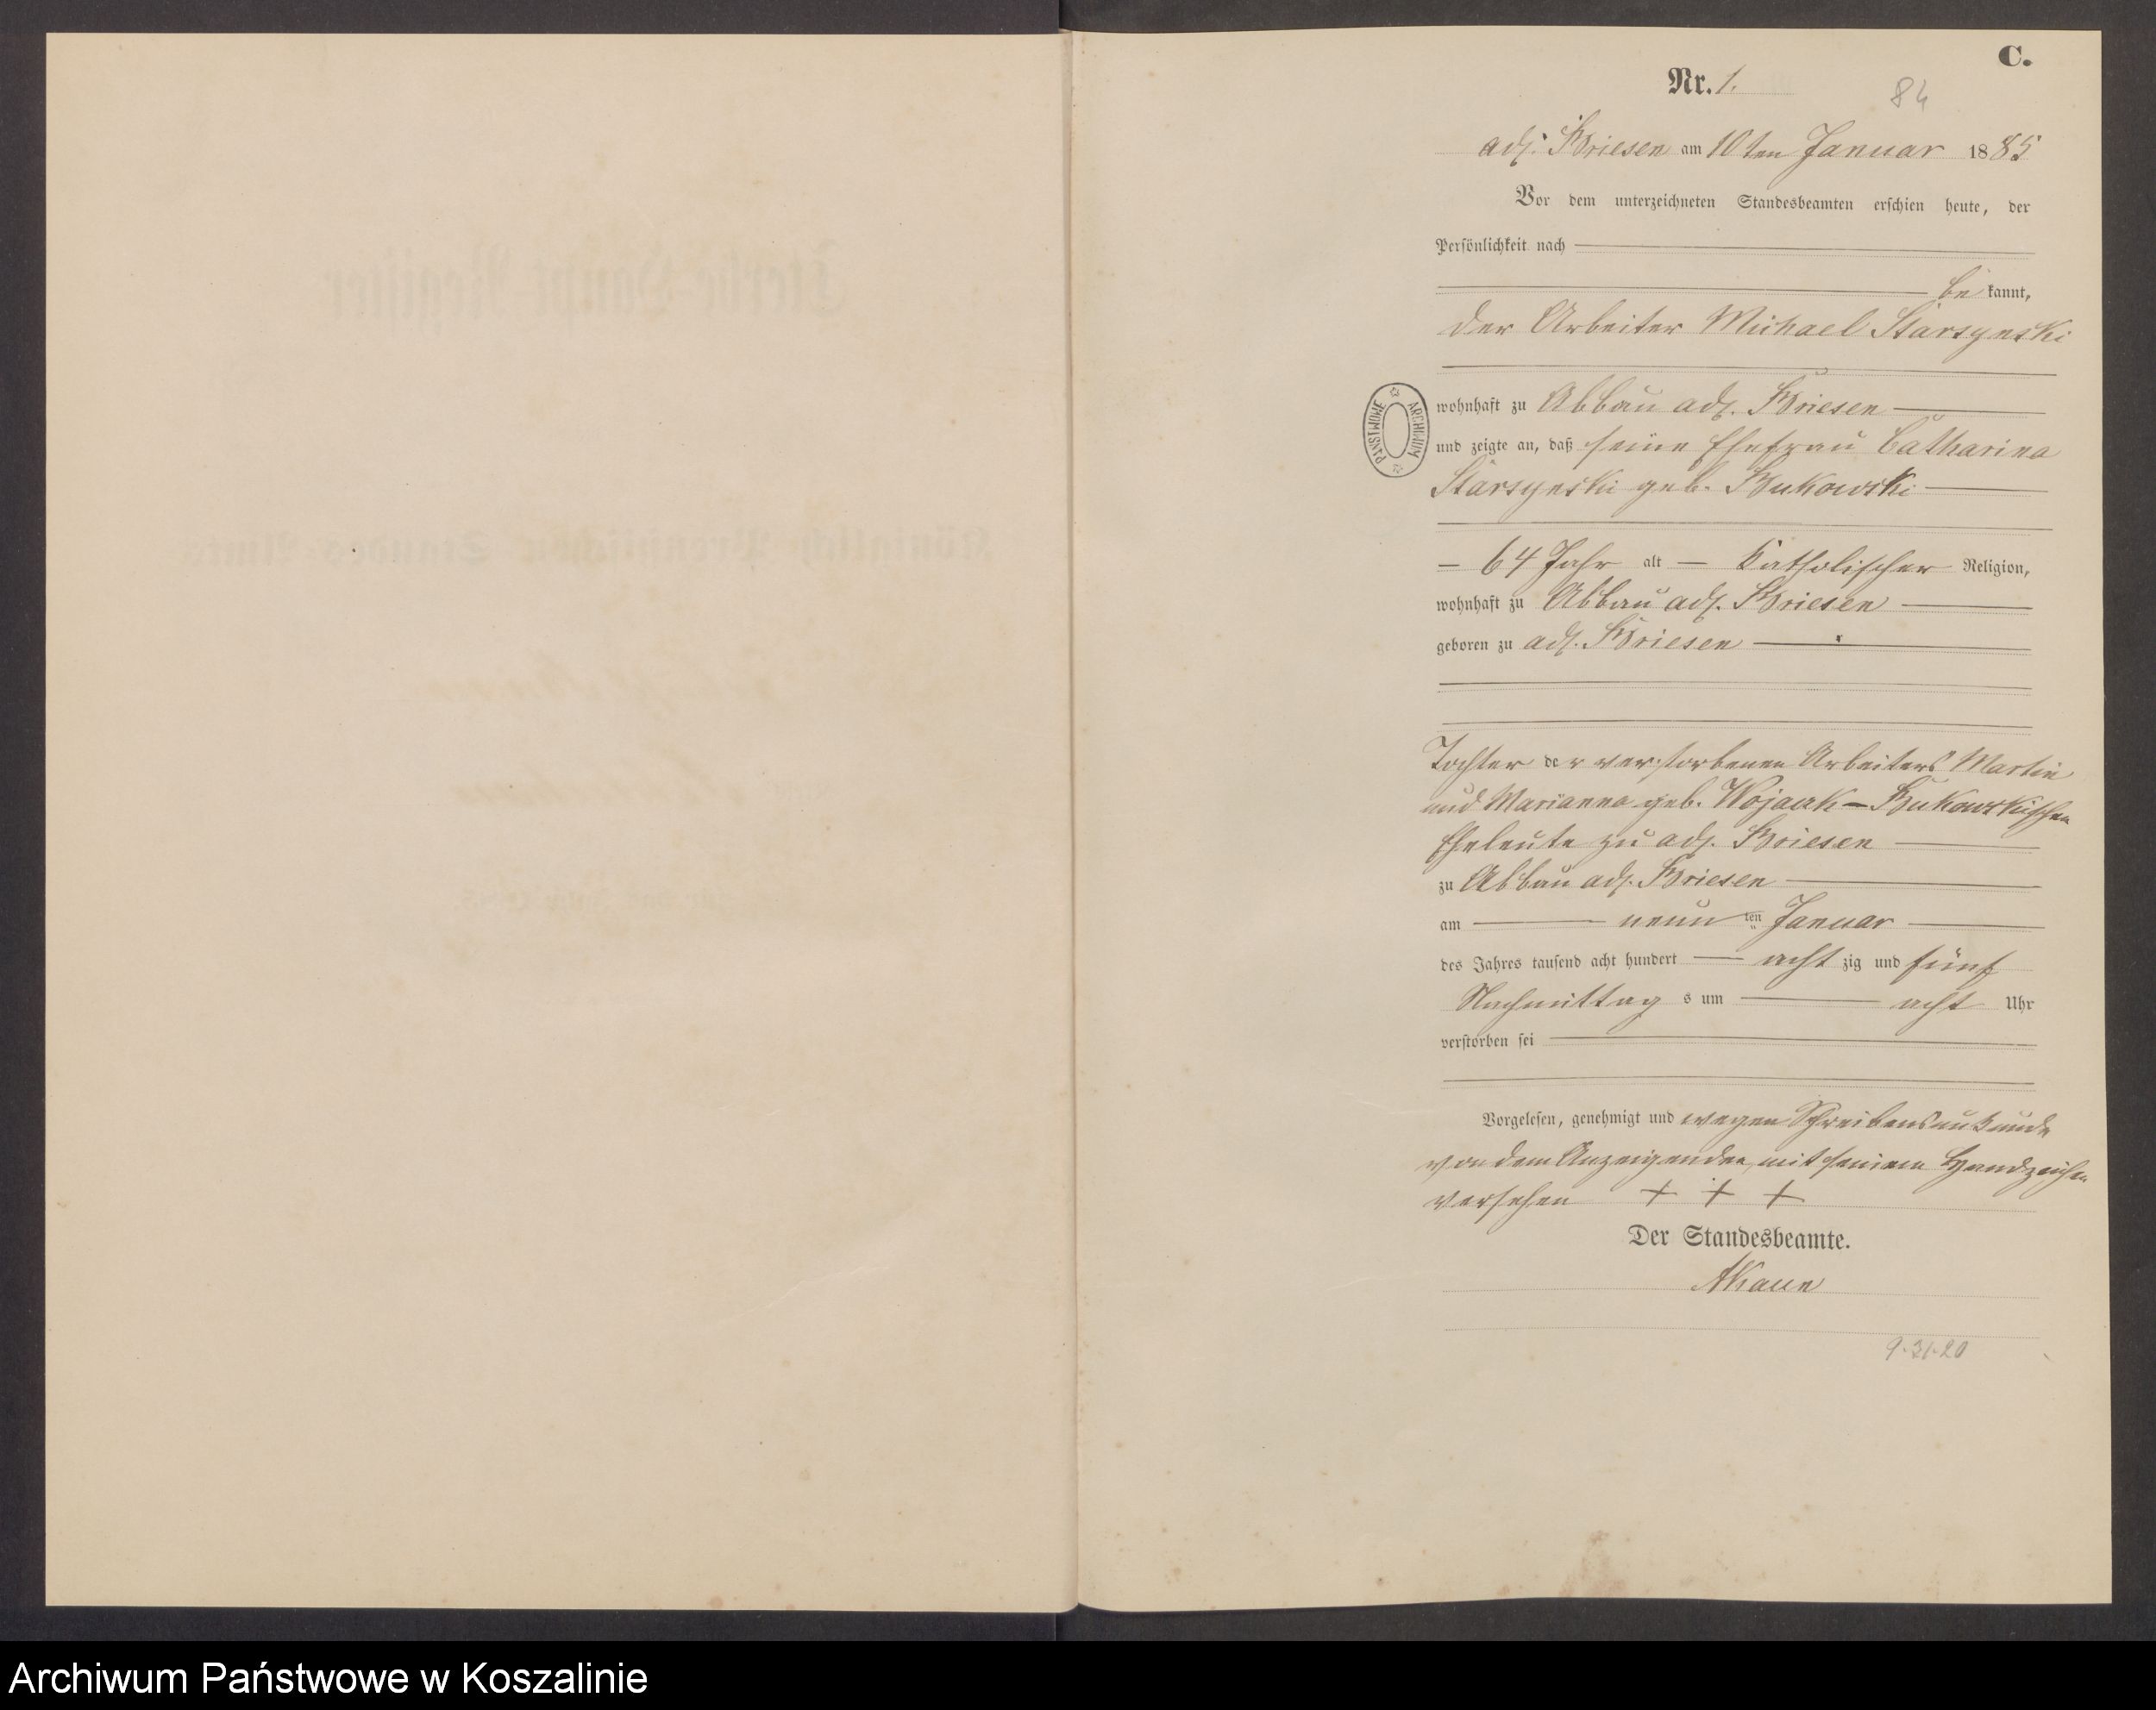 C.
Nr. 1.
84
adl. Briesen am 10ten Januar 1885
Vor dem unterzeichneten Standesbeamten erschien heute, der
Persönlichkeit nach
be kannt,
der Arbeiter Michael Starsynski
wohnhaft zu Abbau adl. Briesen
und zeigte an, daß seine Ehefrau Catharina
Starsynski geb. Bukowski
64 Jahr alt katholischer Religion,
wohnhaft zu Abbau adl. Briesen
geboren zu adl. Briesen
Tochter der verstorbenen Arbeiters Martin
und Marianna geb. - Bukowskischen
Eheleute zu adl. Briesen
zu Abbau adl. Briesen
am neun ten Januar
des Jahres tausend acht hundert acht zig und fünf
Nachmittag s um acht Uhr
verstorben sei
Vorgelesen, genehmigt und wegen Schreibensunkunde
von dem Anzeigenden mit seinem Handzeichen
versehen + + +
Der Standesbeamte.
9-31-20
PAŃSTWOWE ARCHIWUM
Archiwum Państwowe w Koszalinie